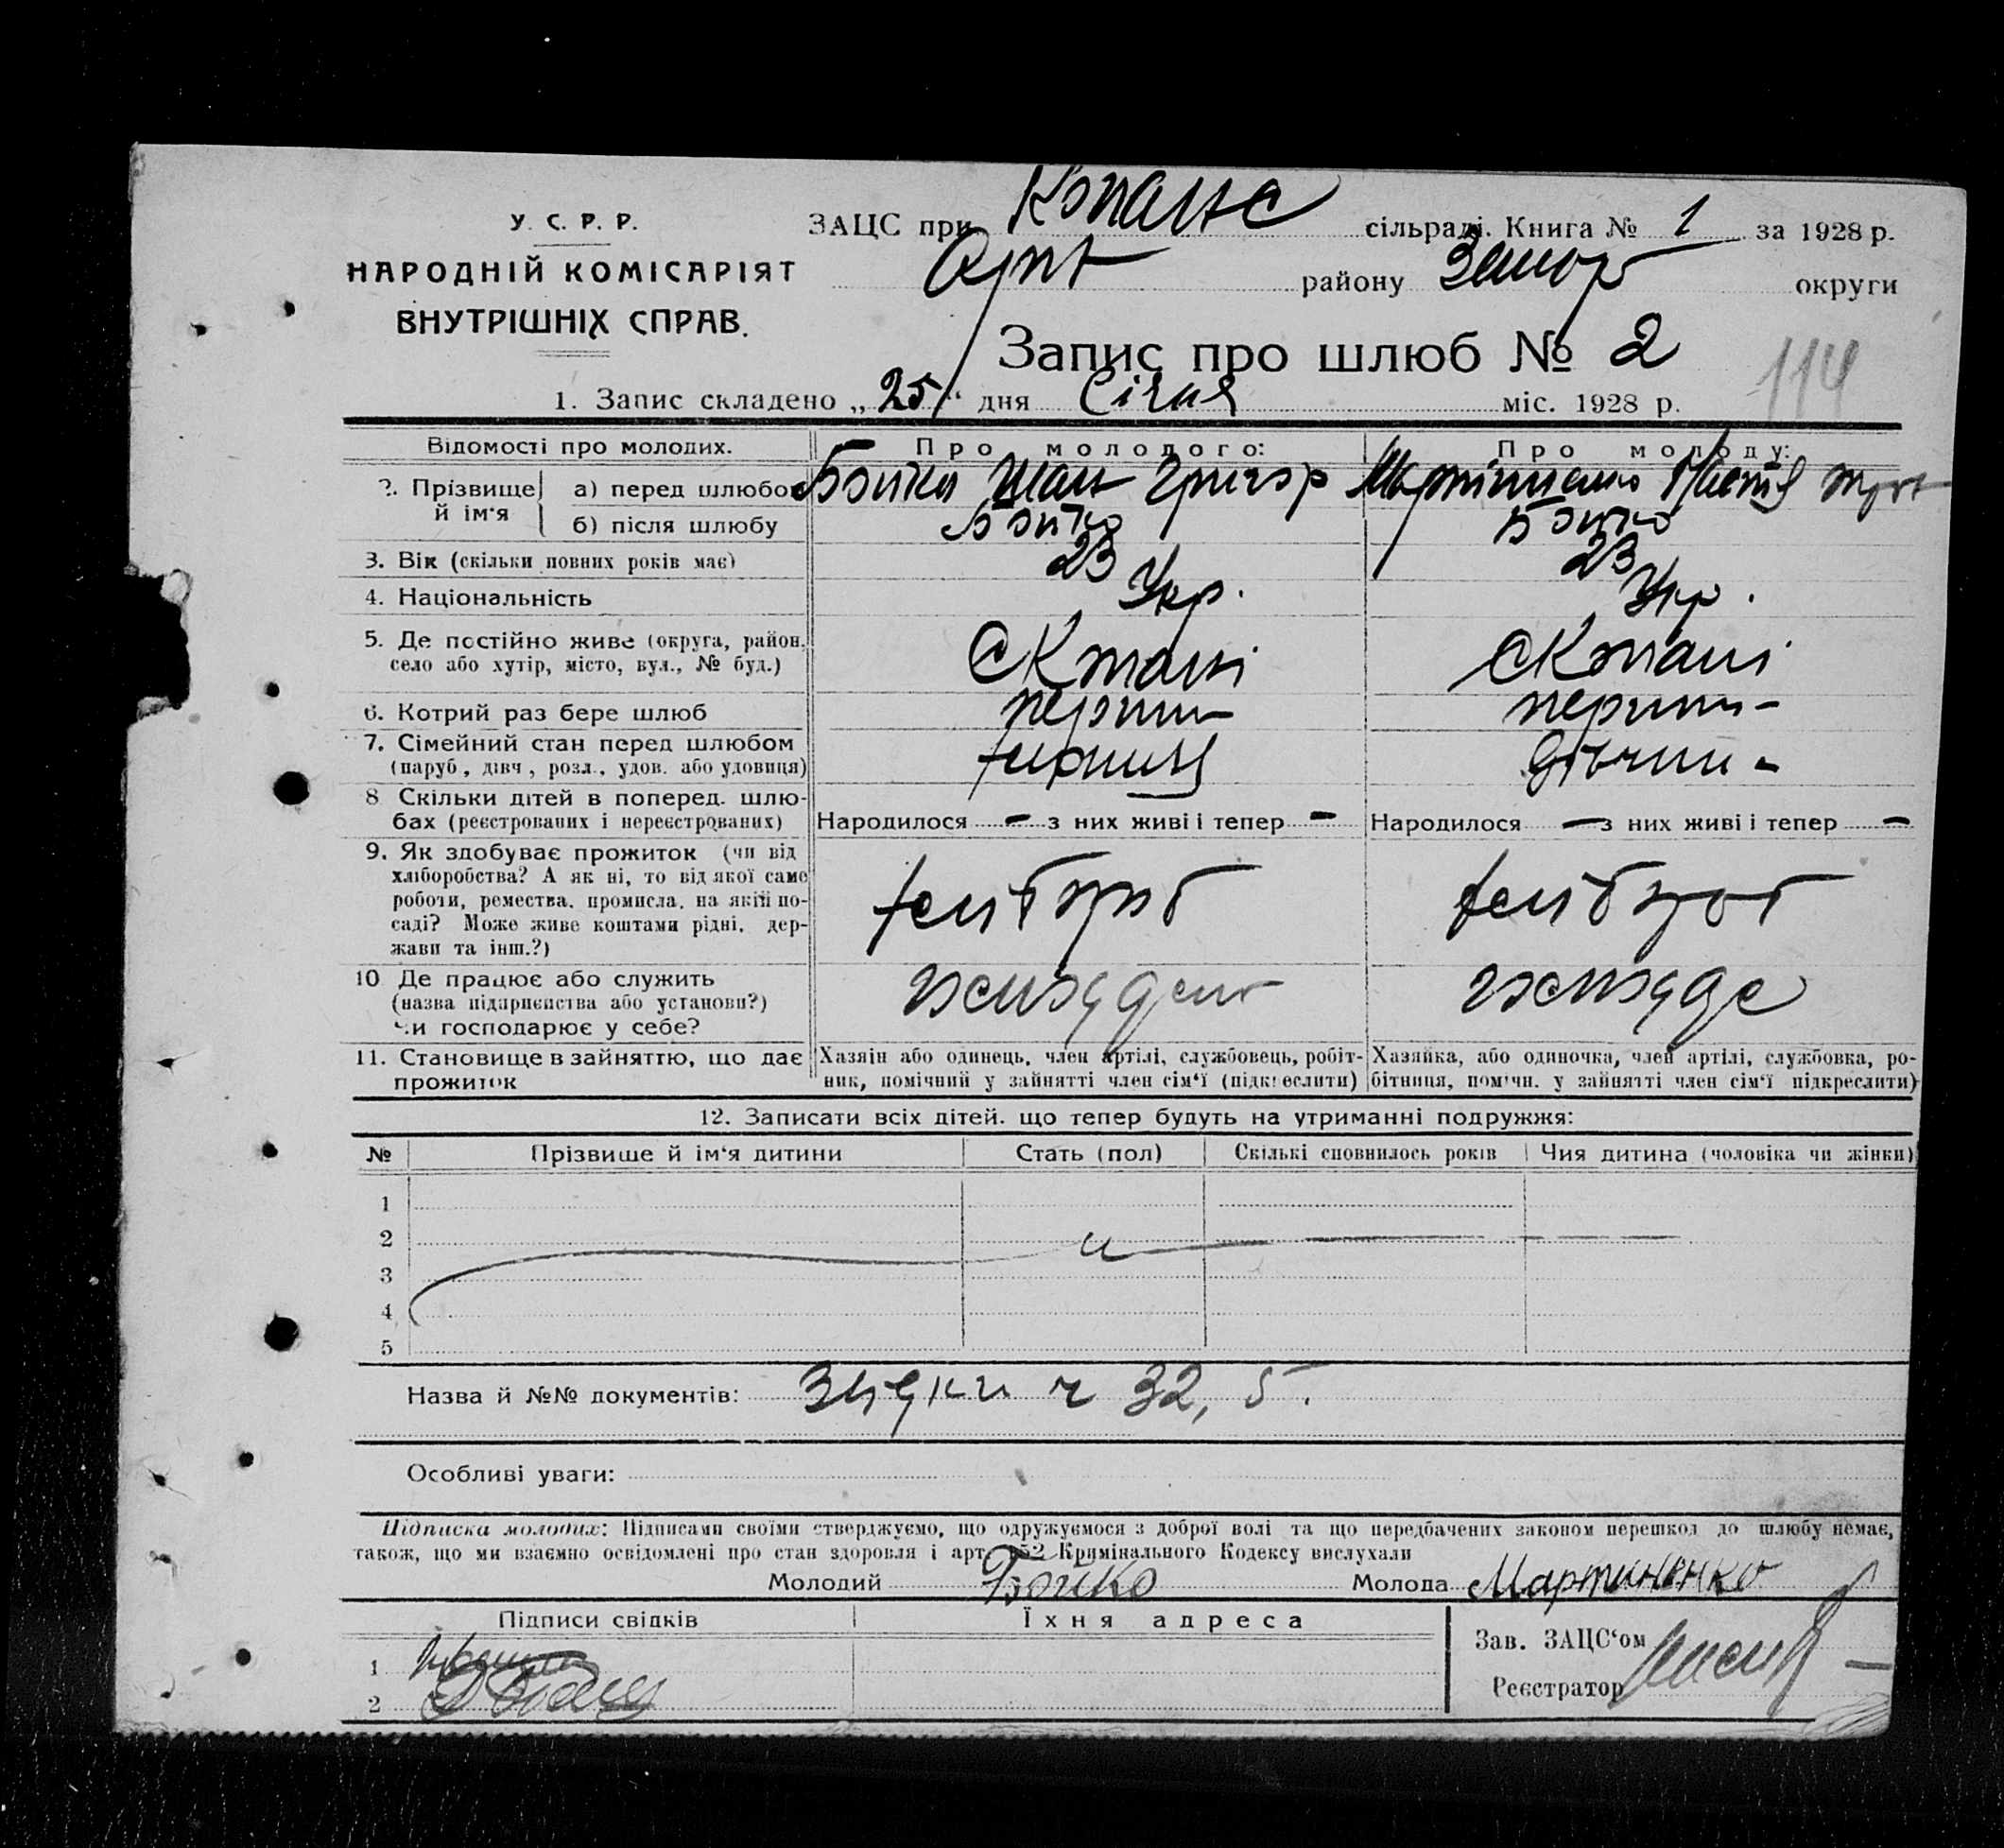 У. С. Р. Р.
НАРОДНІЙ КОМІСАРІЯТ
ВНУТРІШНІХ СПРАВ.
ЗАЦС при Копане сільраді. Книга № 1 за 1928 р.
району округи
Запис про шлюб № 2
114
1. Запис складено „25" дня Січня міс. 1928 р.
Відомості про молодих. Про молодого: Про молоду:
2. Прізвище й ім'я а) перед шлюбом Бойко Іван Григор
б) після шлюбу Бойко Бойко
3. Вік (скільки повних років має) 23 23
4. Національність Укр. Укр.
5. Де постійно живе (округа, район,
село або хутір, місто, вул., № буд.) с Копані с Копані
6. Котрий раз бере шлюб перший перший
7. Сімейний стан перед шлюбом
(паруб., дівч., розл., удов. або удовиця)
8 Скільки дітей в поперед. шлю-
бах (реєстрованих і нереєстрованих) Народилося – з них живі і тепер – Народилося – з них живі і тепер –
9. Як здобуває прожиток (чи від
хліборобства? А як ні, то від якої саме
роботи, ремества, промисла, на якій по-
саді? Може живе коштами рідні, дер-
жави та інш.?)
10 Де працює або служить
(назва підприємства або установи?)
чи господарює у себе?
11. Становище в зайняттю, що дає
прожиток
Хазяїн або одинець, член артілі, службовець, робіт-
ник, помічний у зайнятті член сім'ї (підкреслити)
Хазяйка, або одиночка, член артілі, службовка, ро-
бітниця, помічн. у зайнятті член сім'ї підкреслити)
12. Записати всіх дітей, що тепер будуть на утриманні подружжя:
№ Прізвише й ім'я дитини Стать (пол) Скількі сповнилось років Чия дитина (чоловіка чи жінки)
1
2
3
4
5
Назва й №№ документів: 32, 5.
Особливі уваги:
Підписка молодих: Підписами своїми стверджуємо, що одружуємося з доброї волі та що передбачених законом перешкод до шлюбу немає,
також, що ми взаємно освідомлені про стан здоровля і арт. 152 Кримінального Кодексу вислухали
Молодий Бойко Молода Мартиненко
Підписи свідків Їхня адреса
Зав. ЗАЦС'ом
1
Реєстратор
2